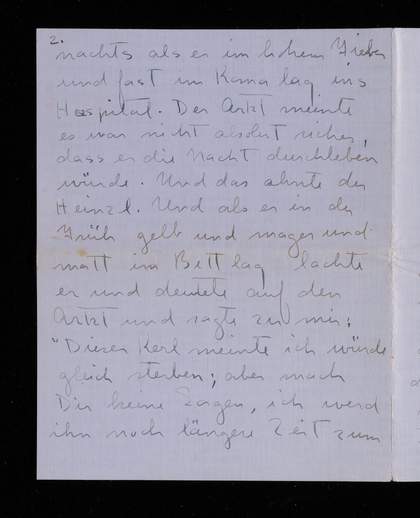 2.
nachts als er im hohem Fieber
und fast im Koma lag ins
Hospital. Der Artzt meinte
es war nicht absolut sicher,
dass er die Nacht durchleben
würde. Und das ahnte der
Heinzl. Und als er in der
Früh gelb und mager und
matt im Bett lag lachte
er und deutete auf den
Artzt und sagte zu mir:
"Dieser Kerl meinte ich würde
gleich sterben; aber mach
Dir keine Sorgen, ich werd
ihn noch längere Zeit zum